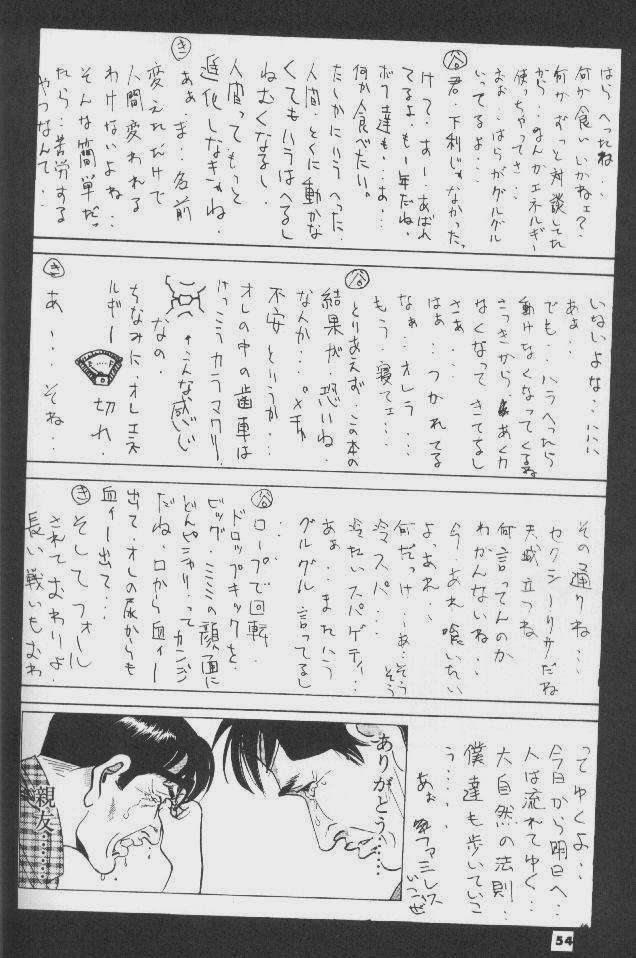 はらへったね・・
何か食いいかねェ？・
何かずっと対談してた
から・・なんかエネルギー
使っちゃってさ・・
おお・・はらがグルグル
いってるよ・・・
谷 君・下利じゃなかった・
けて・すー・あばれ
てるよ・も年だね・
ボク達も・・・お・・・
何か食べたい。
たしかにハラへった・
人間・とくに動かな
くてもハラはへるし
ねむくなるし・
人間って・もっと
進化しなきゃね・
き あぁ・ま 名前
変えただけで
人間変われる
わけないよね・・
そんな簡単だ。
たら・苦労する
やつなんて・・
いないよな・・・
あぁ・・
でも・ハラへったら
動けなくなってくるね
さっきから あくカ
なくなってきてるし
さぁ・・・
はぁ・つかれてる
なぁ・・オレラ・・・
もう・寝てェ・・・
谷 とりあえず・この本の
結果が・恐いね・
なんか・・・〆チャ
不安というか・・
オレの中の歯車は
けっこうカラマワリ・
↑こんな感じ
なの・
ちなみに・オレエネ
ルギー 切れ・
き あ・・・そね・・
その通りね・・・
セクシーリリカだね
天城立つね
何言ってんのか
わかんないね・・・
今・あれ喰いたい
よ・あれ・・
何だっけ・・あ・そう そう
冷スパ・・・
冷たいスパゲティ・・
あぁ・・またハラ
グルグル言ってるし
・・
谷 ロープで回転・
ドロップキックを・
ビッグ・ミミミの顔面に
どんピシャリ・ってカンジ
だね・口から血ィー
出て・オレの尿からも
血ィー出て・・・
き そしてフォール
されておわりよ・
長い戦いもおわ
ってゆくよ・・・
今日から明日へ・・
人は流れてゆく・・
大自然の法則・・
僕達も歩いていこ
う・・・っ
あぉ ファミレス
いこぜ
ありがとう……
親友………
54